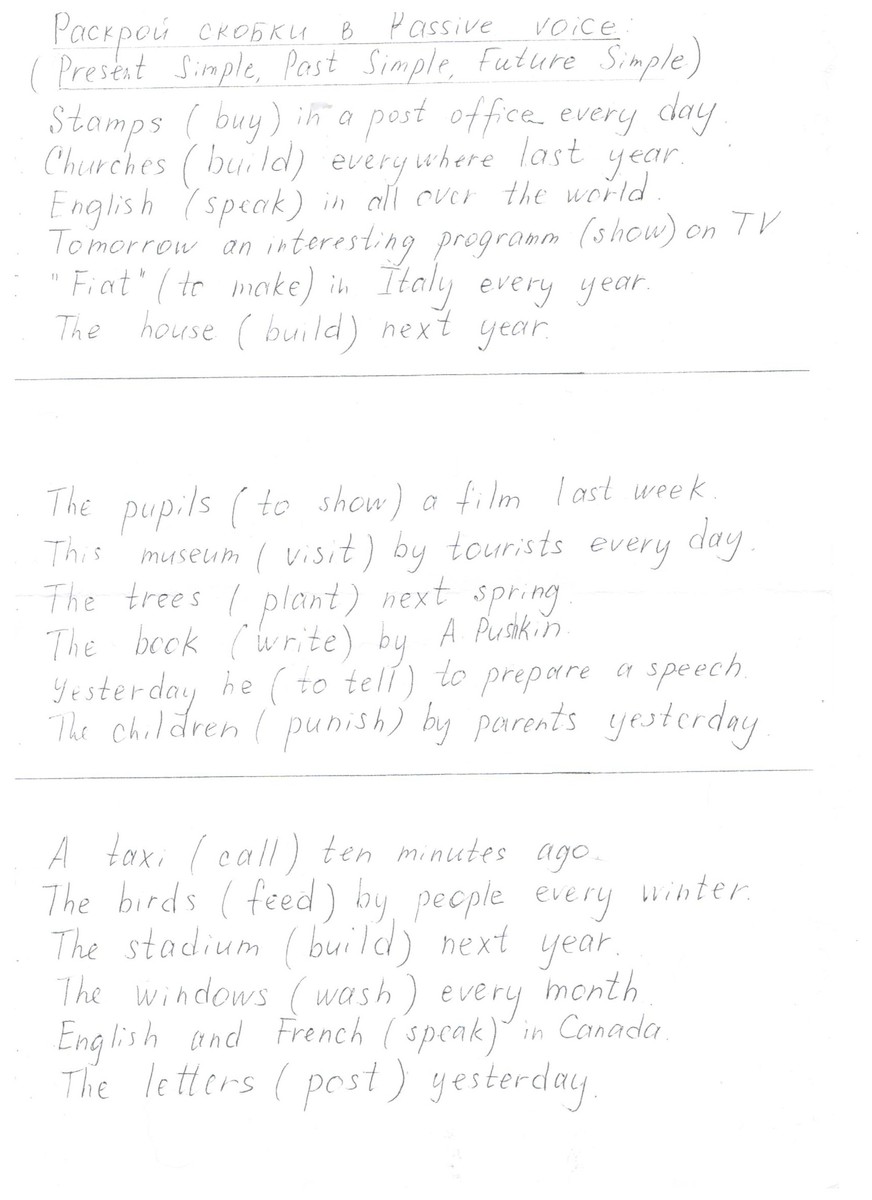 Раскрой скобки в Passive voice:
( Present Simple, Past Simple, Future Simple)
Stamps ( buy) in a post office every day.
Churches ( build) everywhere last year.
English (speak) in all over the world.
Tomorrow an interesting programm (show) on TV
"Fiat" ( to make) in Italy every year.
The house ( build) next year.
The pupils ( to show) a film last week.
This museum ( visit) by tourists every day.
The trees ( plant) next spring.
The book (write) by A. Pushkin.
Yesterday he ( to tell) to prepare a speech.
The children ( punish) by parents yesterday.
A taxi ( call) ten minutes ago.
The birds ( feed) by people every winter.
The stadium (build) next year.
The windows (wash) every month.
English and French (speak) in Canada.
The letters ( post) yesterday.